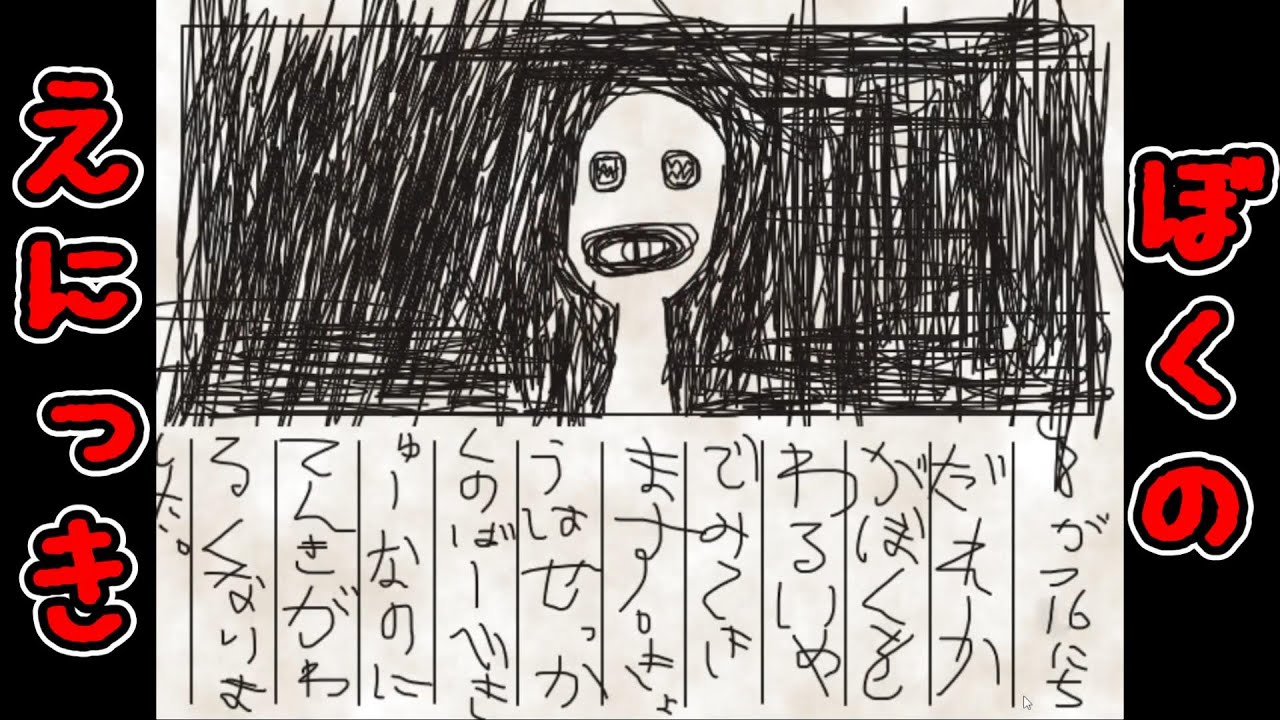 ぼくの
えにっき
8がつ16にち
だれか
がぼくを
わるいめ
でみてき
ます。きょ
うはせっか
くのばーべき
ゅーなのに
てんきがわ
るくなりま
した。